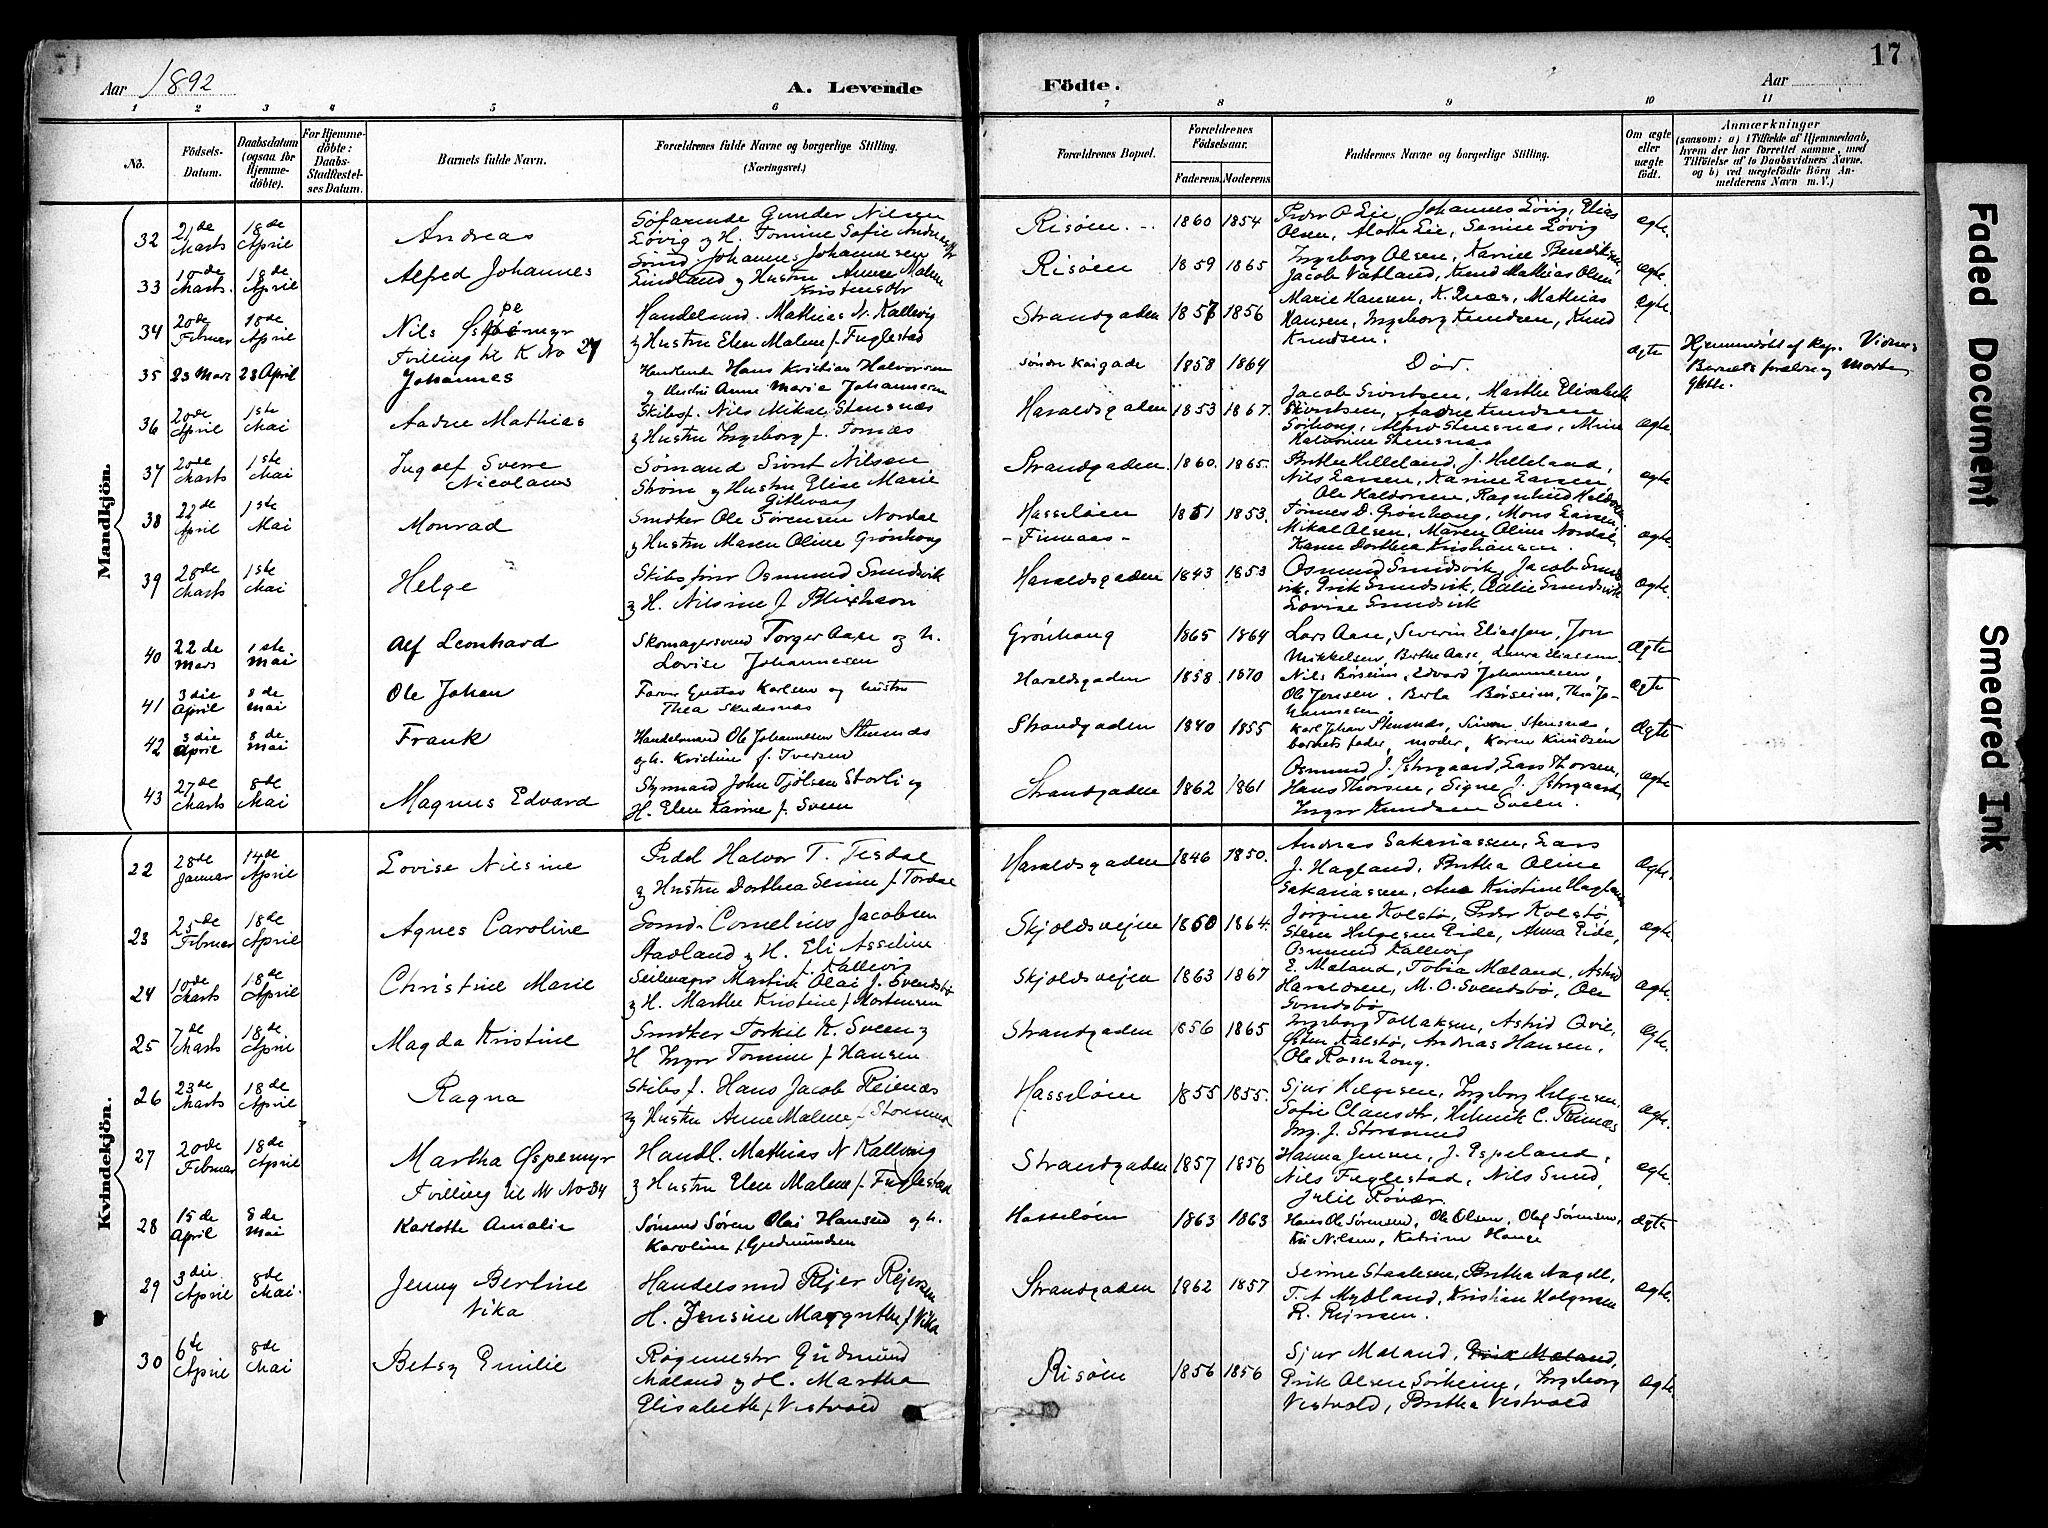 17
Aar 1892
A. Levende
Födte.
Aar
1 2 3 4 5 6 7 8 9 10 11
No.
Födsels-Datum.
Daabsdatum (ogsaa for Hjemme-döbte).
For Hjemme-döbte: Daabs-Stadfæstel-ses Datum.
Barnets fulde Navn.
Forældrenes fulde Navne og borgerlige Stilling. (Næringsvei.)
Forældrenes Bopæl.
Forældrenes Födselsaar.
Faderens Moderens
Faddernes Navne og borgerlige Stilling.
Om ægte eller uægte födt.
Anmærkninger
(saasom: a) i Tilfælde af Hjemmedaab, hvem der har forrettet samme, med Tilföielse af to Daabsvidners Navne. og b) ved uægtefödte Börn An-melderens Navn m. V.)
Mandkjön.
32 21de Marts 18de April Andreas Söfarende Gunder Nilsen Lövig H. Tomine Sofie Risöen 1860 1854 Peder O Lie, Johannes Lövig, Elias Olsen, Lie, Serine Lövig ægte.
33 10de Marts. 18de April Alfred Johannes Sömd. Johannes Johannesen Lindland og Hustru Anne Malene Kristensdtr Risöen 1859 1865 Ingeborg Olsen, Karine Jacob Vatland, Knud Mathias Olsen ægte.
34 20de Februar 18de April Nils Öspemyr Tvilling til K No 27 Handelsmd. Mathias N. Kallevig og Hustru Elen Malene f. Fuglestad Strandgaden 1857 1856 Marie Hansen, Mathias Hansen, Ingeborg Knudsen, Knud Knudsen. ægte.
35 23 Mars 23 April Johannes Handlende Hans Kristian Halvorsen og Hustru Anne Marie Johannesen söndre Kaigade 1858 1864 Död. ægte Hjemmedöbt af Rep. Barnets forældre og Morten
36 20de April 1ste Mai Aadne Mathias Skibsf. Nils Mikal Stensnæs og Hustru Ingeborg f. Tornæs Haraldsgaden 1853 1867. Jacob Sivertsen, Marthe Elisabeth Sivertsen, Aadne Knudsen Alfred Stensnæs, Stensnæs ægte.
37 20de Marts 1ste Mai Ingolf Sverre Nicolaus Sömand Sivert Nilsen Ström og Hustru Elise Marie Strandgaden. 1860. 1865. Brithe Helleland, J. Helleland, Nils Larsen, Karine Larsen, Ole Haldorsen, Ragnhild ægte
38 22de April 1ste Mai Monrad Snedker Ole Sörensen Nordal og Hustru Maren Oline Grönhoug Hasselöen - Finnaas - 1851 1853. Tönnes D. Grönhoug, Mons Larsen, Mikal Olsen, Maren Oline Nordal, Karen Dorthea Kristiansen. ægte.
39 20de Marts 1ste Mai Helge Skibsförer Osmund Sundsvik og H. Nilsine f. Haraldsgaden 1843 1853 Osmund Sundsvik, Jacob Sundsvik, Erik Sundsvik, Sundsvik Lovise Sundsvik ægte.
40 22de Mars 1ste Mai Alf Leonhard Skomagersvend Torger Aase og h. Lovise Johannesen Grönhoug 1865 1864 Lars Aase, Severin Eliassen, Jon Mikkelsen, Berthe Aase, Laura Eliassen. ægte
41 3die April 8de Mai Ole Johan Farver Gustav Karlsen og hustru Thea Skudesnæs Haraldsgaden 1858 1870 Nils Börseim, Edvard Johannesen, Ole Jensen. Berta Börseim, Thea Johannesen. ægte
42 3die April 8de Mai Frank Handelsmand Ole Johannesen Stensnæs og h. Kristine f. Iversen Strandgaden 1840 1855 Karl Johan Stensnæs, Stensnæs, barnets fader, moder, Karen Knudsen ægte
43 27de Marts 8de Mai Magnus Edvard Styrmand John Tjölsen Storli og H. Elen Karine f. Sveen Strandgaden 1862 1861 Osmund J. Lars Thorsen, Hans Thorsen, Signe J. Inger Knudsen Sveen. ægte
Kvindekjön.
22 28de Januar 14de April Lovise Nilsine Halvor T. Tesdal og Hustru Dorthea Serine f. Tordal Haraldsgaden 1846 1850. Andreas Sakariassen, Lars J. Hagland, Brita Oline Sakariassen, Ane Kristine Hagland ægte.
23 25de Februar 18de April Agnes Caroline Sömd. Cornelius Jacobsen Aadland og H. Eli Asseline f. Kallevig Skjoldsvejen 1860 1864. Jörgine Kolstö, Peder Kolstö, Steen Helgesen Eide, Anna Eide, Osmund Kallevig ægte.
24 10de Marts 18de April Christine Marie Seilmager Martin Olai J. Svendsbö og H. Marthe Kristine f. Mortensen Skjoldsvejen 1863 1867 E. Mæland, Tobia Mæland, Astrid Haraldsen, M. O. Svendsbö, Ole Svendsbö ægte.
25 7de Marts 18de April Magda Kristine Snedker Torkil K. Sveen og H Inger Tomine f. Hansen Strandgaden 1856 1865 Ingeborg Tollaksen, Astrid Qvie, Östen Kalstö, Andreas Hansen, Ole ægte.
26 23de Marts 18de April Ragna Skibsf. Hans Jacob Reinæs og Hustru Anne Malene f. Storesund Hasselöen 1855 1855. Sjur Helgesen, Ingeborg Helgesen, Sofie Clausdtr, Helmik C. Reinæs Ing. J. Storesund ægte.
27 20de Februar 18de April Martha Öspemyr Tvilling til M No 34 Handl. Mathias N Kallevig og Hustru Elen Malene f. Fuglestad Strandgaden 1857 1856 Hanna Jensen, J. Espeland, Nils Fuglestad, Nils Sund, Julie Rövær. ægte.
28 15de April 8de Mai Karlotte Amalie Sömand Sören Olai Hansen og h. Karoline f. Gudmundsen Hasselöen 1863 1863 Hans Ole Sörensen, Ole Olsen, Oleg Sörensen, Nilsen, Katrine Hauge ægte
29 3die April 8de Mai. Jenny Bertine Vika Handelsmd Reier Reiersen H. Jensine Margrethe f. Vika Strandgaden 1862 1857 Serine Staalesen, Britha Nagell, T. A Mydland, Kristian Holgersen R. Reiersen. ægte.
30 6te April 8de Mai Betsy Emilie Rögemester Gudmund Mæland og H. Martha Elisabeth f. Vestvold Risöen 1856 1856 Sjur Mæland, Erik Mæland, Erik Olsen Sörheim, Ingeborg Vestvold, Britha Vestvold ægte.
Faded Document
Smeared Ink